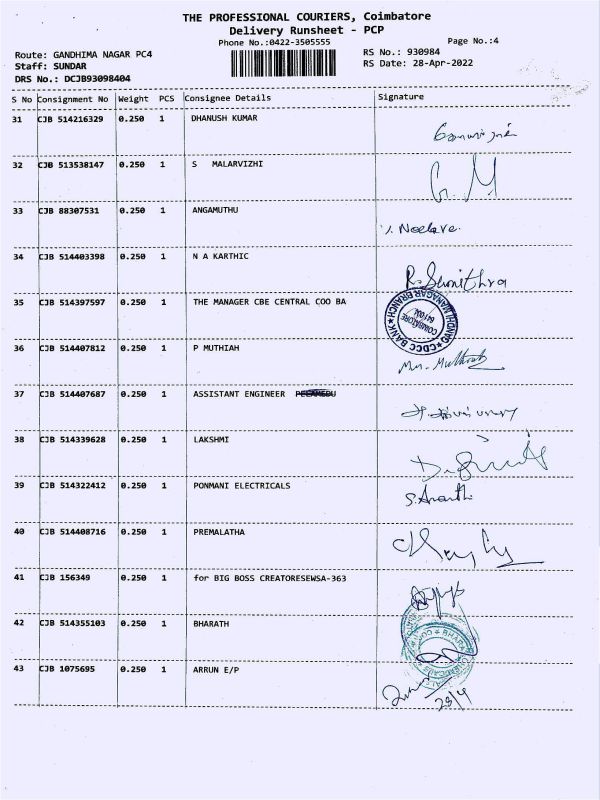 THE PROFESSIONAL COURIERS, Coimbatore
Delivery Runsheet - PCP
Phone No.:0422-3505555
Page No.:4
Route: GANDHIMA NAGAR PC4
RS No.: 930984
Staff: SUNDAR
RS Date: 28-Apr-2022
DRS No.: DCJB93098404
S No Consignment No Weight PCS Consignee Details Signature
31 CJB 514216329 0.250 1 DHANUSH KUMAR
32 CJB 513538147 0.250 1 S MALARVIZHI
G. M
33 CJB 88307531 0.250 1 ANGAMUTHU
34 CJB 514403398 0.250 1 N A KARTHIC
R. Sunithra
35 CJB 514397597 0.250 1 THE MANAGER CBE CENTRAL COO BA
CDCC BANK ★ GANDHI MANAGAR BRANCH ★
COIMBATORE
36 CJB 514407812 0.250 1 P MUTHIAH
37 CJB 514407687 0.250 1 ASSISTANT ENGINEER PEELAMEDU
38 CJB 514339628 0.250 1 LAKSHMI
39 CJB 514322412 0.250 1 PONMANI ELECTRICALS
S. Ananthi
40 CJB 514408716 0.250 1 PREMALATHA
41 CJB 156349 0.250 1 for BIG BOSS CREATORESEWSA-363
42 CJB 514355103 0.250 1 BHARATH
43 CJB 1075695 0.250 1 ARRUN E/P
29/4